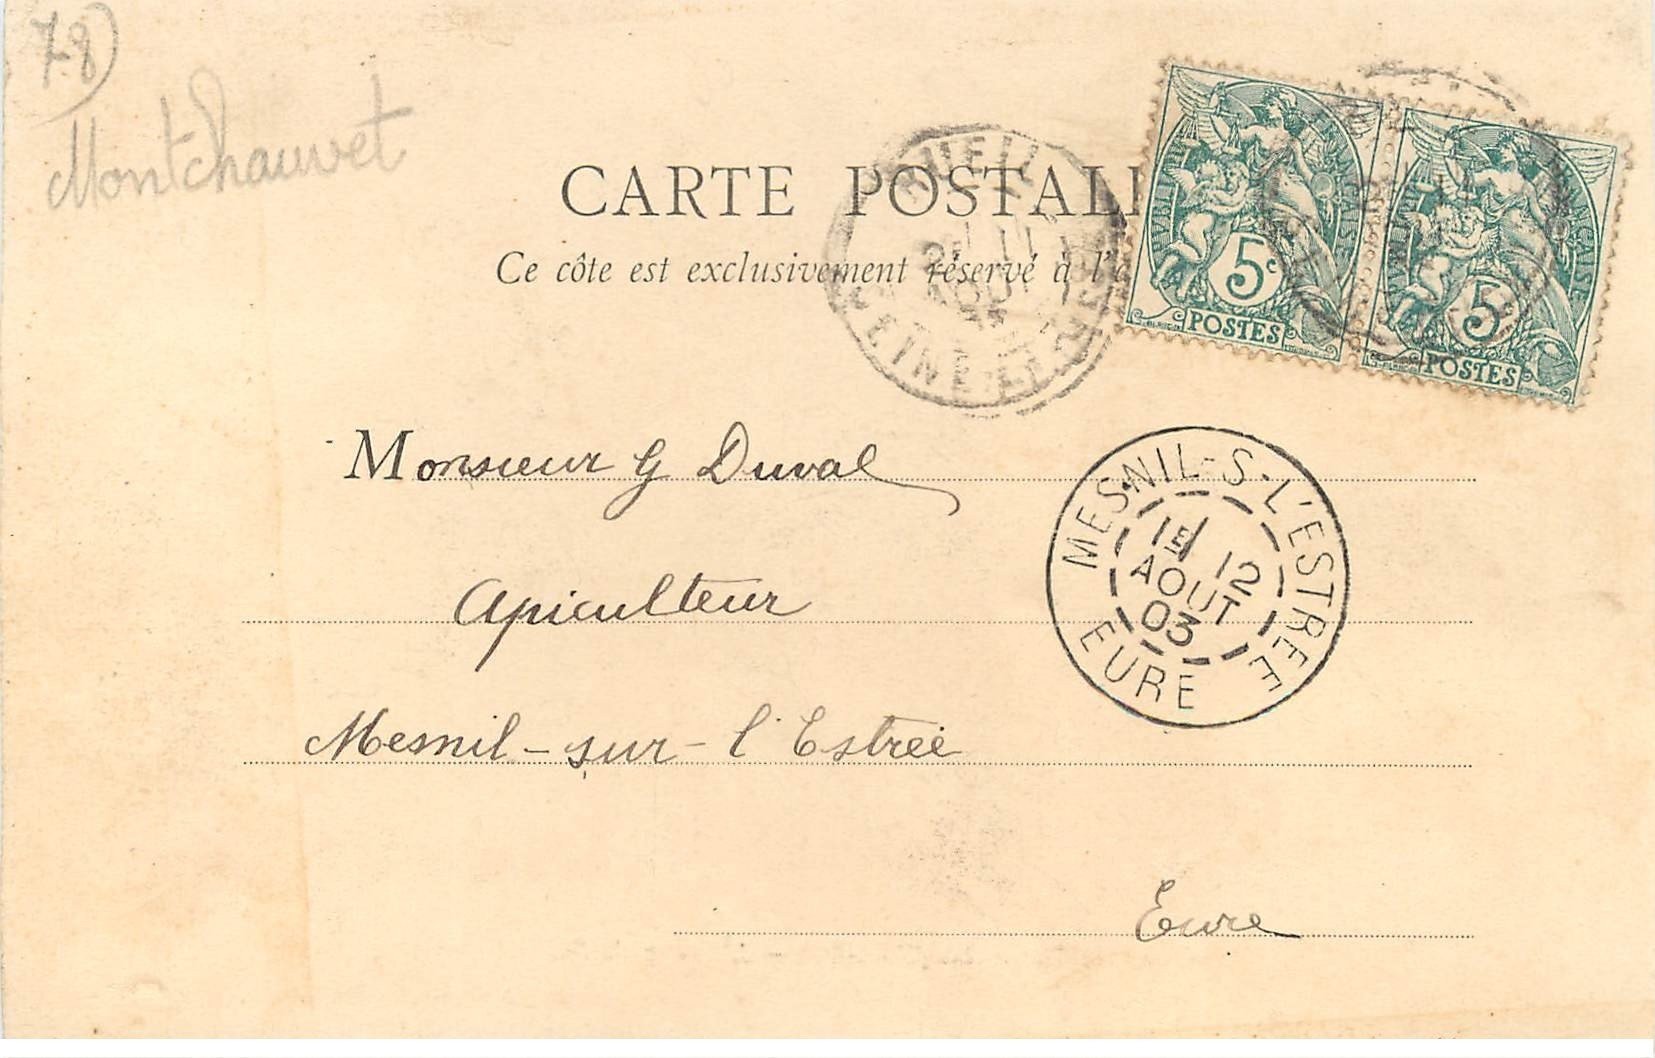 78
Montchauvet
CARTE POSTALE
Ce côte est exclusivement réservé à l'a
BUEIL
AOUT
SEINE-ET-OISE
RÉPUBLIQUE FRANÇAISE
5c
POSTES
FRANÇAISE
5c
POSTES
Monsieur G Duval
MESNIL-S-L'ESTREE
1E 12
AOUT
03
EURE
Apiculteur
Mesnil-sur-l'Estrée
Eure